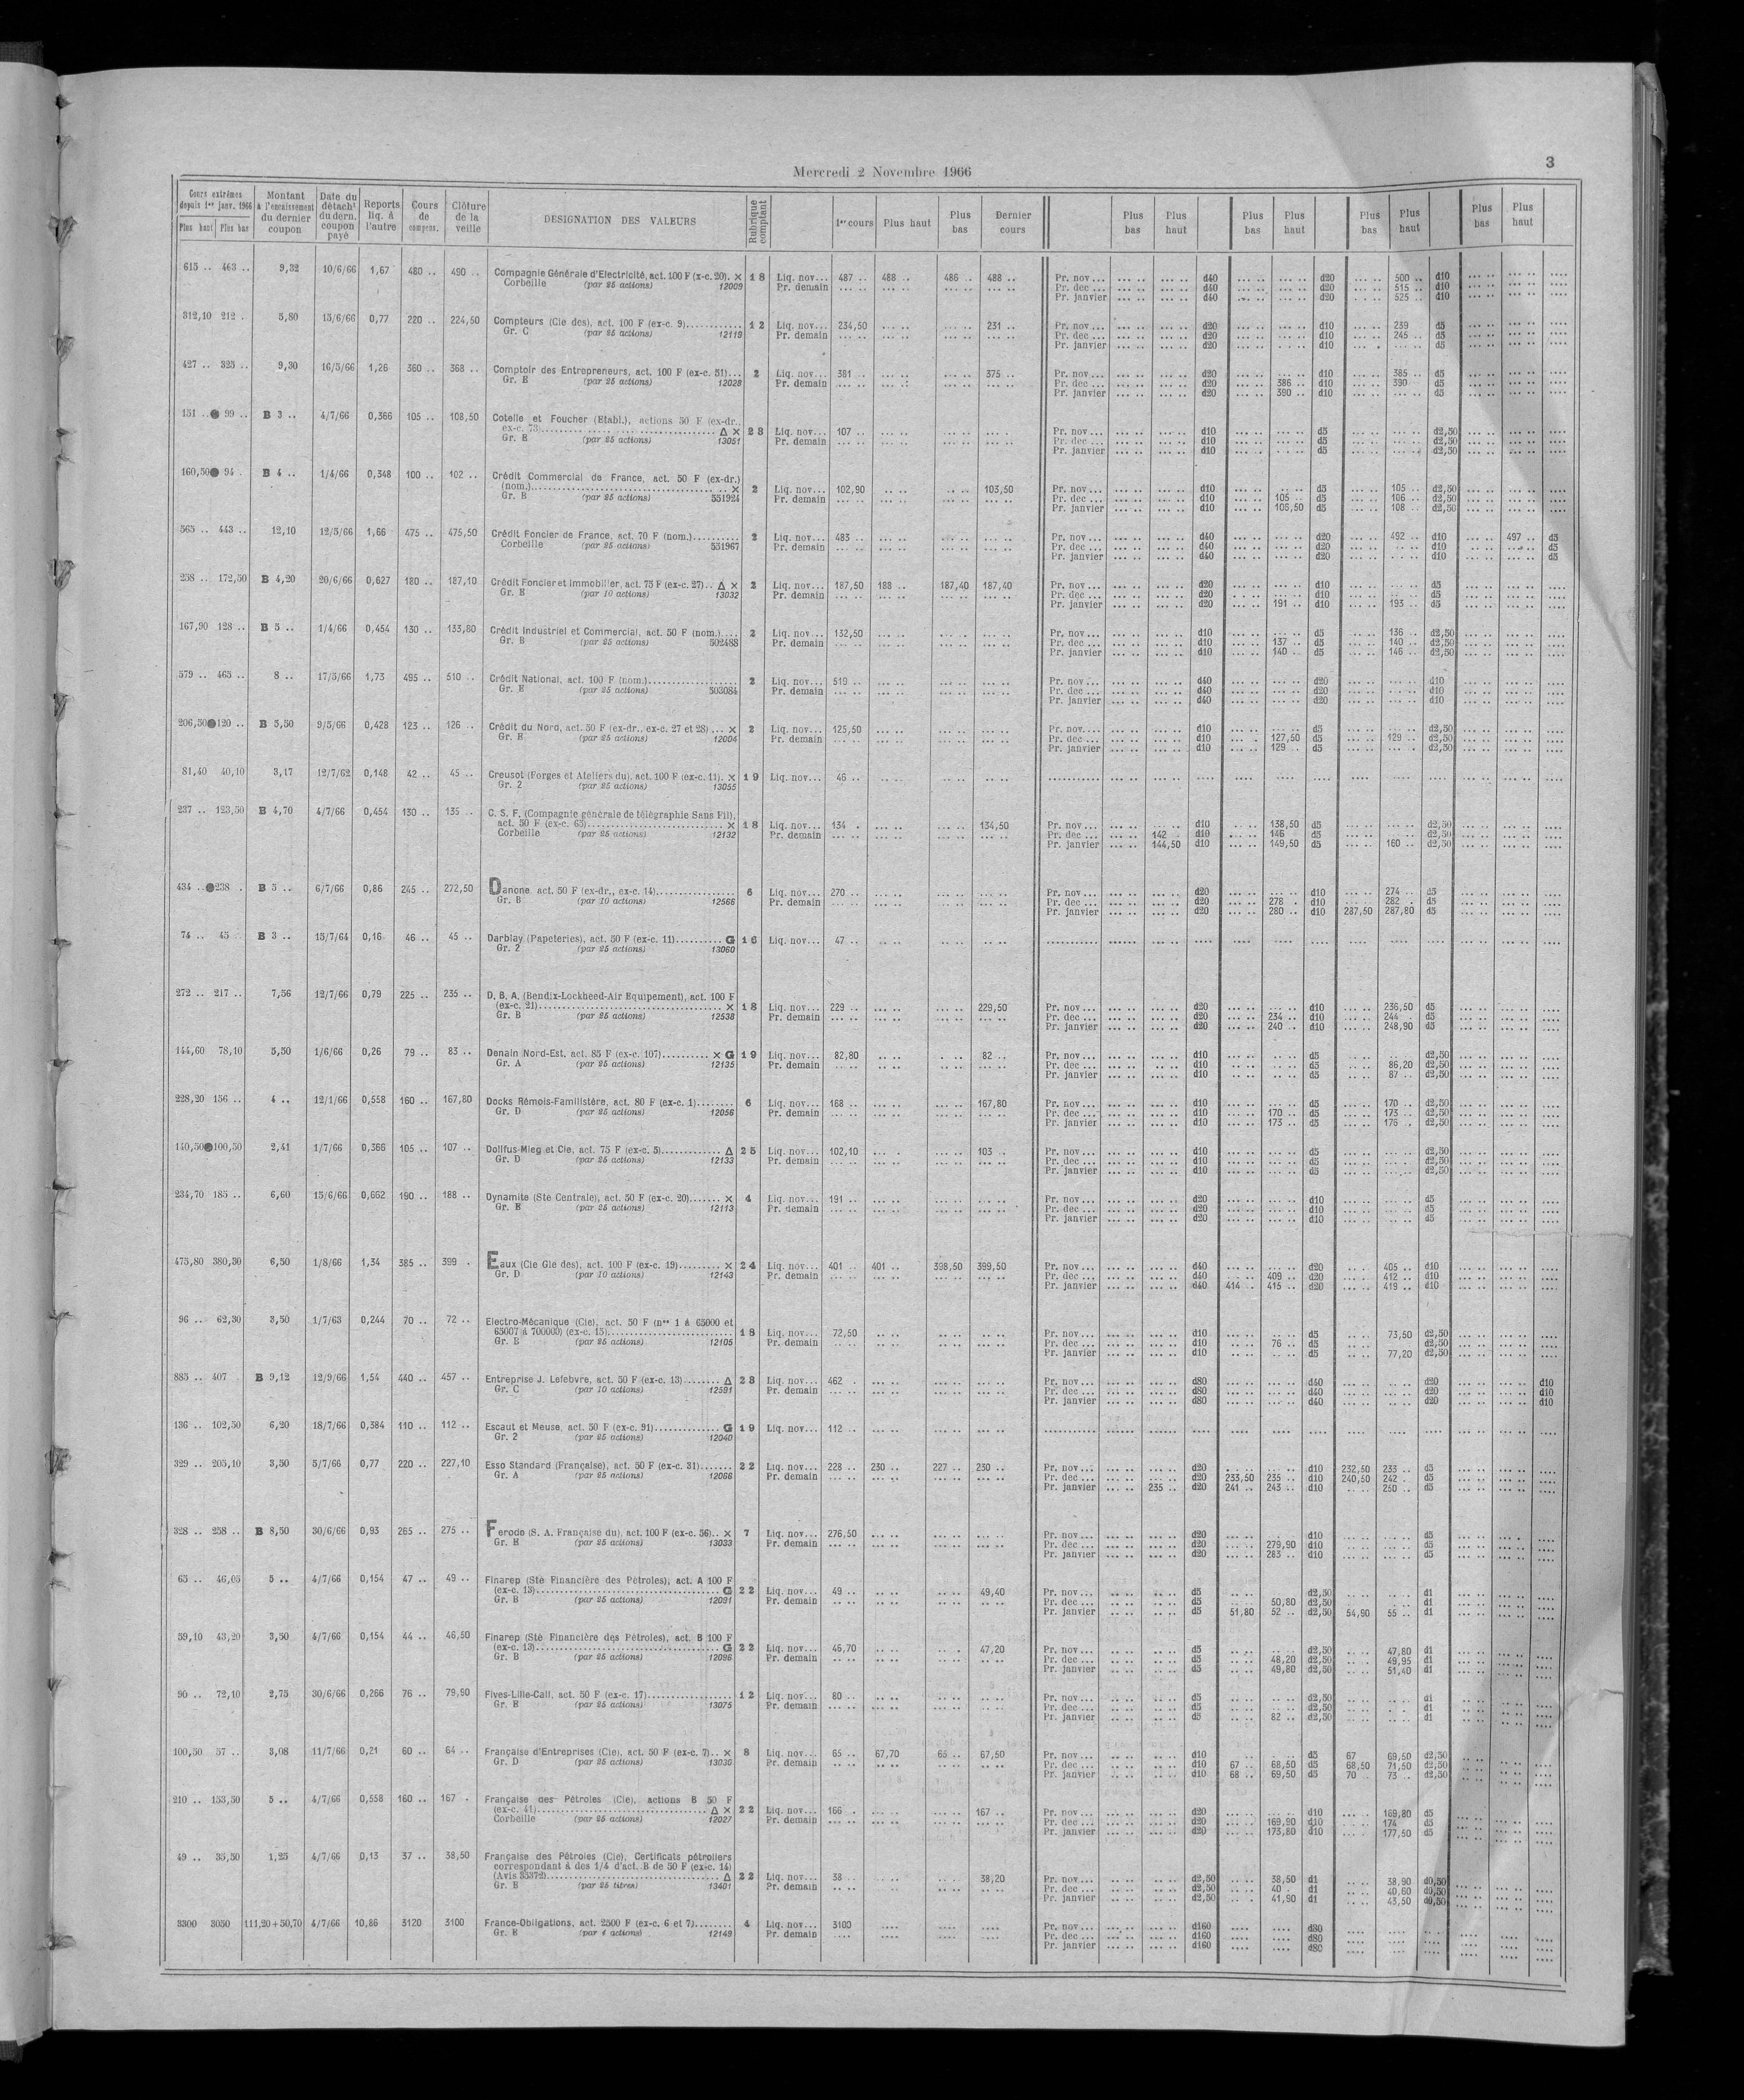 Mercredi 2 Novembre 1966
3
Cours extrêmes depuis 1er janv. 1966 Plus haut Plus bas | Montant à l'encaissement du dernier coupon | Date du détach¹ du dern. coupon payé | Reports liq. à l'autre | Cours de compens. | Clôture de la veille | DESIGNATION DES VALEURS | Rubrique comptant | 1er cours | Plus haut | Plus bas | Dernier cours | Plus bas | Plus haut | Plus bas | Plus haut | Plus bas | Plus haut | Plus bas | Plus haut
615 .. 463 .. 9,32 10/6/66 1,67 480 .. 490 .. Compagnie Générale d'Electricité, act. 100 F (x-c. 20). × 18 Liq. nov... 487 .. 488 .. 486 .. 488 .. Pr. nov ... d40 d20 500 .. d10
Corbeille (par 25 actions) 12009 Pr. demain Pr. dec ... d40 d20 515 .. d10
Pr. janvier d40 d20 525 .. d10
312,10 212 . 5,80 15/6/66 0,77 220 .. 224,50 Compteurs (Cie des), act. 100 F (ex-c. 9) 12 Liq. nov... 234,50 231 .. Pr. nov ... d20 d10 239 d5
Gr. C (par 25 actions) 12119 Pr. demain Pr. dec ... d20 d10 245 .. d5
Pr. janvier d20 d10 d5
427 .. 325 .. 9,30 16/5/66 1,26 360 .. 368 .. Comptoir des Entrepreneurs, act. 100 F (ex-c. 51)... 2 Liq. nov... 381 .. 375 .. Pr. nov ... d20 d10 385 .. d5
Gr. E (par 25 actions) 12028 Pr. demain Pr. dec ... d20 386 .. d10 390 d5
Pr. janvier d20 390 .. d10 d5
151 .. ● 99 .. B 3 .. 4/7/66 0,366 105 .. 108,50 Cotelle et Foucher (Etabl.), actions 50 F (ex-dr.,
ex-c. 73) Δ × 28 Liq. nov... 107 .. Pr. nov ... d10 d5 d2,50
Gr. B (par 25 actions) 13051 Pr. demain Pr. dec ... d10 d5 d2,50
Pr. janvier d10 d5 d2,50
160,50 ● 94 . B 4 .. 1/4/66 0,348 100 .. 102 .. Crédit Commercial de France, act. 50 F (ex-dr.)
(nom.) × 2 Liq. nov... 102,90 103,50 Pr. nov ... d10 d5 105 .. d2,50
Gr. B (par 25 actions) 551924 Pr. demain Pr. dec ... d10 105 .. d5 106 .. d2,50
Pr. janvier d10 106,50 d5 108 .. d2,50
565 .. 443 .. 12,10 12/5/66 1,66 475 .. 475,50 Crédit Foncier de France, act. 70 F (nom.) 2 Liq. nov... 483 .. Pr. nov ... d40 d20 492 .. d10 497 .. d5
Corbeille (par 25 actions) 551967 Pr. demain Pr. dec ... d40 d20 d10 d5
Pr. janvier d40 d20 d10 d5
258 .. 172,50 B 4,20 20/6/66 0,627 180 .. 187,10 Crédit Foncier et Immobilier, act. 75 F (ex-c. 27).. Δ × 2 Liq. nov... 187,50 188 .. 187,40 187,40 Pr. nov ... d20 d10 d5
Gr. E (par 10 actions) 13032 Pr. demain Pr. dec ... d20 d10 d5
Pr. janvier d20 191 .. d10 193 .. d5
167,90 128 .. B 5 .. 1/4/66 0,454 130 .. 133,80 Crédit Industriel et Commercial, act. 50 F (nom.).... 2 Liq. nov... 132,50 Pr. nov ... d10 d5 136 .. d2,50
Gr. B (par 25 actions) 502488 Pr. demain Pr. dec ... d10 137 .. d5 140 .. d2,50
Pr. janvier d10 140 . d5 146 .. d2,50
579 .. 465 .. 8 .. 17/5/66 1,73 495 .. 510 .. Crédit National, act. 100 F (nom.) 2 Liq. nov... 519 .. Pr. nov ... d40 d20 d10
Gr. E (par 25 actions) 503084 Pr. demain Pr. dec ... d40 d20 d10
Pr. janvier d40 d20 d10
206,50 ● 120 .. B 5,50 9/5/66 0,428 123 .. 126 .. Crédit du Nord, act. 50 F (ex-dr., ex-c. 27 et 28) ... × 2 Liq. nov... 125,50 Pr. nov ... d10 d5 d2,50
Gr. E (par 25 actions) 12004 Pr. demain Pr. dec ... d10 127,50 d5 129 .. d2,50
Pr. janvier d10 129 .. d5 d2,50
81,40 40,10 3,17 12/7/62 0,148 42 .. 45 .. Creusot (Forges et Ateliers du), act. 100 F (ex-c. 11). × 19 Liq. nov... 46 ..
Gr. 2 (par 25 actions) 13055
237 .. 123,50 B 4,70 4/7/66 0,454 130 .. 135 .. C. S. F. (Compagnie générale de télégraphie Sans Fil),
act. 50 F (ex-c. 65) × 18 Liq. nov... 134 . 134,50 Pr. nov ... d10 138,50 d5 d2,50
Corbeille (par 25 actions) 12132 Pr. demain Pr. dec ... 142 d10 146 d5 d2,50
Pr. janvier 144,50 d10 149,50 d5 160 .. d2,50
434 .. ● 238 . B 5 .. 6/7/66 0,86 245 .. 272,50 Danone, act. 50 F (ex-dr., ex-c. 14) 6 Liq. nov... 270 .. Pr. nov ... d20 d10 274 .. d5
Gr. B (par 10 actions) 12566 Pr. demain Pr. dec ... d20 278 . d10 282 . d5
Pr. janvier d20 280 .. d10 287,50 287,80 d5
74 .. 45 . B 3 .. 15/7/64 0,16 46 .. 45 .. Darblay (Papeteries), act. 50 F (ex-c. 11) G 16 Liq. nov... 47 ..
Gr. 2 (par 25 actions) 13060
272 .. 217 .. 7,56 12/7/66 0,79 225 .. 235 .. D. B. A. (Bendix-Lockheed-Air Equipement), act. 100 F
(ex-c. 21) × 18 Liq. nov... 229 .. 229,50 Pr. nov ... d20 d10 236,50 d5
Gr. B (par 25 actions) 12538 Pr. demain Pr. dec ... d20 234 .. d10 244 . d5
Pr. janvier d20 240 .. d10 248,90 d5
144,60 78,10 5,50 1/6/66 0,26 79 .. 83 .. Denain Nord-Est, act. 85 F (ex-c. 107) × G 19 Liq. nov... 82,80 82 .. Pr. nov ... d10 d5 d2,50
Gr. A (par 25 actions) 12135 Pr. demain Pr. dec ... d10 d5 86,20 d2,50
Pr. janvier d10 d5 87 .. d2,50
228,20 156 .. 4 .. 12/1/66 0,558 160 .. 167,80 Docks Rémois-Familistère, act. 80 F (ex-c. 1) 6 Liq. nov... 168 .. 167,80 Pr. nov ... d10 d5 170 .. d2,50
Gr. D (par 25 actions) 12056 Pr. demain Pr. dec ... d10 170 .. d5 173 .. d2,50
Pr. janvier d10 173 .. d5 176 . d2,50
140,50 ● 100,50 2,41 1/7/66 0,366 105 .. 107 .. Dollfus-Mieg et Cie, act. 75 F (ex-c. 5) Δ 25 Liq. nov... 102,10 103 .. Pr. nov ... d10 d5 d2,50
Gr. D (par 25 actions) 12133 Pr. demain Pr. dec ... d10 d5 d2,50
Pr. janvier d10 d5 d2,50
234,70 185 .. 6,60 15/6/66 0,662 190 .. 188 .. Dynamite (Sté Centrale), act. 50 F (ex-c. 20) × 4 Liq. nov... 191 .. Pr. nov ... d20 d10 d5
Gr. B (par 25 actions) 12113 Pr. demain Pr. dec ... d20 d10 d5
Pr. janvier d20 d10 d5
475,80 380,30 6,50 1/8/66 1,34 385 .. 399 . Eaux (Cie Gle des), act. 100 F (ex-c. 19) × 24 Liq. nov... 401 .. 401 .. 398,50 399,50 Pr. nov ... d40 d20 405 .. d10
Gr. D (par 10 actions) 12143 Pr. demain Pr. dec ... d40 409 .. d20 412 .. d10
Pr. janvier d40 414 .. 415 .. d20 419 .. d10
96 .. 62,30 3,50 1/7/63 0,244 70 .. 72 .. Electro-Mécanique (Cie), act. 50 F (nos 1 à 65000 et
65007 à 700000) (ex-c. 15) 18 Liq. nov... 72,50 Pr. nov ... d10 d5 73,50 d2,50
Gr. E (par 25 actions) 12105 Pr. demain Pr. dec ... d10 76 .. d5 d2,50
Pr. janvier d10 d5 77,20 d2,50
885 .. 407 . B 9,12 12/9/66 1,54 440 .. 457 .. Entreprise J. Lefebvre, act. 50 F (ex-c. 13) Δ 28 Liq. nov... 462 . Pr. nov ... d80 d40 d20 d10
Gr. C (par 10 actions) 12591 Pr. demain Pr. dec ... d80 d40 d20 d10
Pr. janvier d80 d40 d20 d10
136 .. 102,50 6,20 18/7/66 0,384 110 .. 112 .. Escaut et Meuse, act. 50 F (ex-c. 91) G 19 Liq. nov... 112 ..
Gr. 2 (par 25 actions) 12040
329 .. 205,10 3,50 5/7/66 0,77 220 .. 227,10 Esso Standard (Française), act. 50 F (ex-c. 31) 22 Liq. nov... 228 .. 230 .. 227 .. 230 .. Pr. nov ... d20 d10 232,50 233 .. d5
Gr. A (par 25 actions) 12066 Pr. demain Pr. dec ... d20 233,50 235 .. d10 240,50 242 . d5
Pr. janvier 235 .. d20 241 .. 243 .. d10 250 .. d5
328 .. 258 .. B 8,50 30/6/66 0,93 265 .. 275 .. Ferodo (S. A. Française du), act. 100 F (ex-c. 56).. × 7 Liq. nov... 276,50 Pr. nov ... d20 d10 d5
Gr. E (par 25 actions) 13033 Pr. demain Pr. dec ... d20 279,90 d10 d5
Pr. janvier d20 283 .. d10 d5
65 .. 46,05 5 .. 4/7/66 0,154 47 .. 49 .. Finarep (Sté Financière des Pétroles), act. A 100 F
(ex-c. 13) G 22 Liq. nov... 49 .. 49,40 Pr. nov ... d5 d2,50 d1
Gr. B (par 25 actions) 12091 Pr. demain Pr. dec ... d5 50,80 d2,50 d1
Pr. janvier d5 51,80 52 .. d2,50 54,90 55 .. d1
59,10 43,20 3,50 4/7/66 0,154 44 .. 46,50 Finarep (Sté Financière des Pétroles), act. B 100 F
(ex-c. 13) G 22 Liq. nov... 46,70 47,20 Pr. nov ... d5 d2,50 47,80 d1
Gr. B (par 25 actions) 12096 Pr. demain Pr. dec ... d5 48,20 d2,50 49,95 d1
Pr. janvier d5 49,80 d2,50 51,40 d1
90 .. 72,10 2,75 30/6/66 0,266 76 .. 79,90 Fives-Lille-Cail, act. 50 F (ex-c. 17) 12 Liq. nov... 80 .. Pr. nov ... d5 d2,50 d1
Gr. E (par 25 actions) 13075 Pr. demain Pr. dec ... d5 d2,50 d1
Pr. janvier d5 82 .. d2,50 d1
100,50 57 .. 3,08 11/7/66 0,21 60 .. 64 .. Française d'Entreprises (Cie), act. 50 F (ex-c. 7).. × 8 Liq. nov... 65 .. 67,70 65 .. 67,50 Pr. nov ... d10 d5 67 69,50 d2,50
Gr. D (par 25 actions) 13030 Pr. demain Pr. dec ... d10 67 .. 68,50 d5 68,50 71,50 d2,50
Pr. janvier d10 68 .. 69,50 d5 70 .. 73 .. d2,50
210 .. 153,50 5 .. 4/7/66 0,558 160 .. 167 . Française des Pétroles (Cie), actions B 50 F
(ex-c. 41) Δ × 22 Liq. nov... 166 . 167 .. Pr. nov ... d20 d10 169,80 d5
Corbeille (par 25 actions) 12027 Pr. demain Pr. dec ... d20 169,90 d10 174 d5
Pr. janvier d20 173,80 d10 177,50 d5
49 .. 35,50 1,25 4/7/66 0,13 37 .. 38,50 Française des Pétroles (Cie), Certificats pétroliers
correspondant à des 1/4 d'act. B de 50 F (ex-c. 14)
(Avis 35372) Δ 22 Liq. nov... 38 .. 38,20 Pr. nov ... d2,50 38,50 d1 38,90 d0,50
Gr. B (par 25 titres) 13401 Pr. demain Pr. dec ... d2,50 40 . d1 40,60 d0,50
Pr. janvier d2,50 41,90 d1 43,50 d0,50
3300 3050 111,20+50,70 4/7/66 10,86 3120 3100 France-Obligations, act. 2500 F (ex-c. 6 et 7) 4 Liq. nov... 3100 Pr. nov ... d160 d80
Gr. E (par 4 actions) 12149 Pr. demain Pr. dec ... d160 d80
Pr. janvier d160 d80